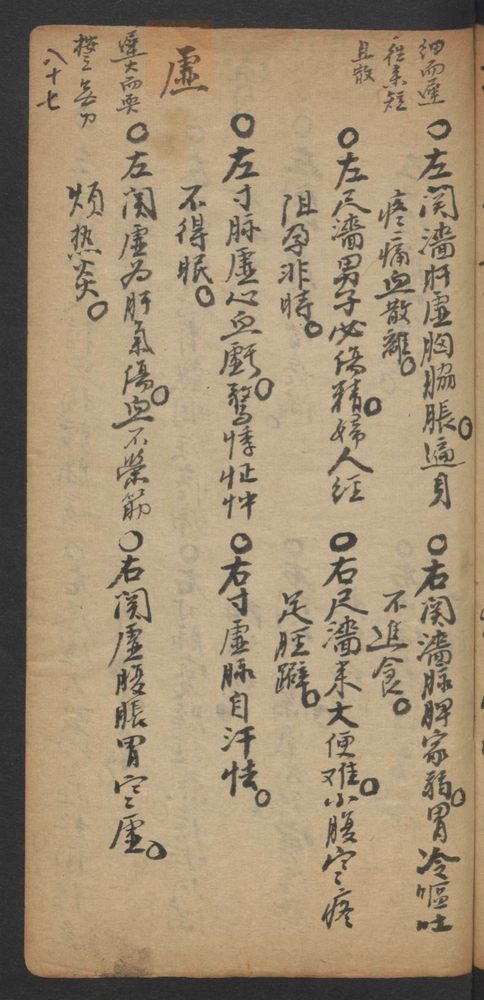 細而遲
往來短
且散
○左関濇肝虛胸脇脹○遍身
疼痛血散離○
○右関濇脉脾家弱○胃冷嘔吐
不進食○
○左尺濇男子必傷精○婦人經
阻孕非時○
○右尺濇来大便难○小腹空疼
足脛癖○
虛
○左寸脉虛心血虧○驚悸怔忡
不得眠○
○右寸虛脉自汗怯○
遲大而耎
按之無力
八十七
○左関虛為肝氣傷○血不榮筋
煩热炎○
○右関虛腹脹胃空虛○